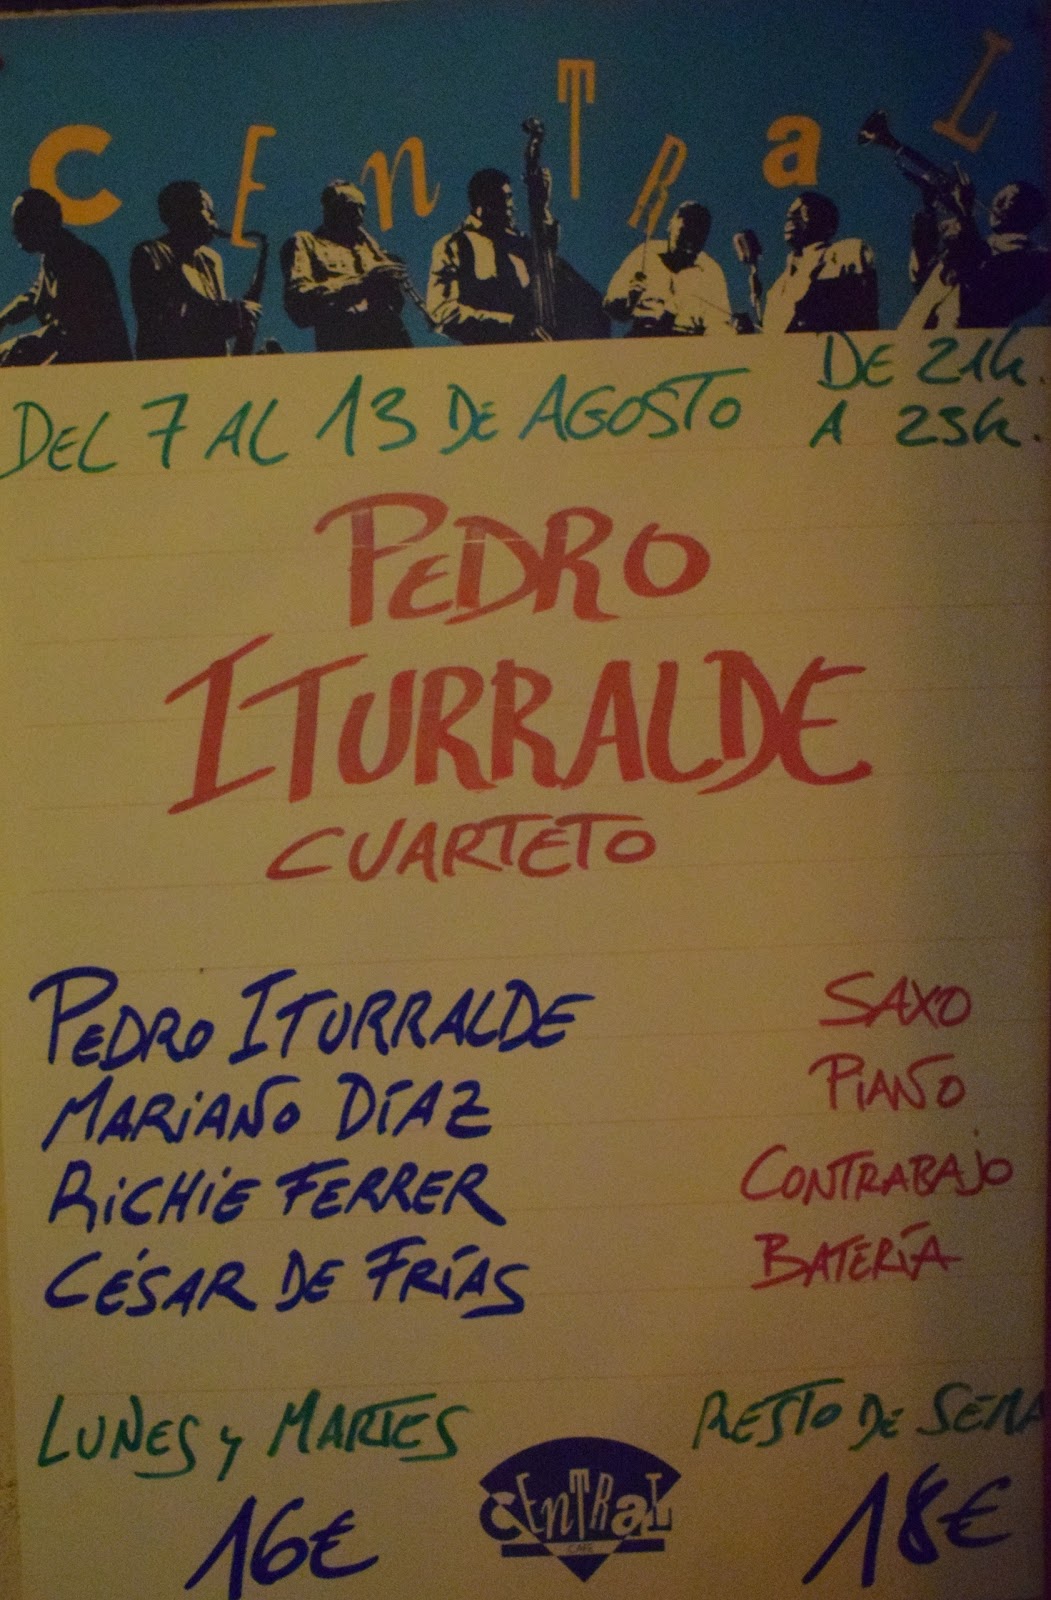 CEnTRaL
DEL 7 AL 13 DE AGOSTO
DE 21h.
A 23h.
PEDRO
ITURRALDE
CUARTETO
PEDRO ITURRALDE SAXO
MARIANO DÍAZ PIANO
RiCHiE FERRER CONTRABAJO
CÉSAR DE FRÍAS BATERÍA
LUNES y MARTES RESTO DE SEMA
16€ 18€
CEnTRaL
CAFE